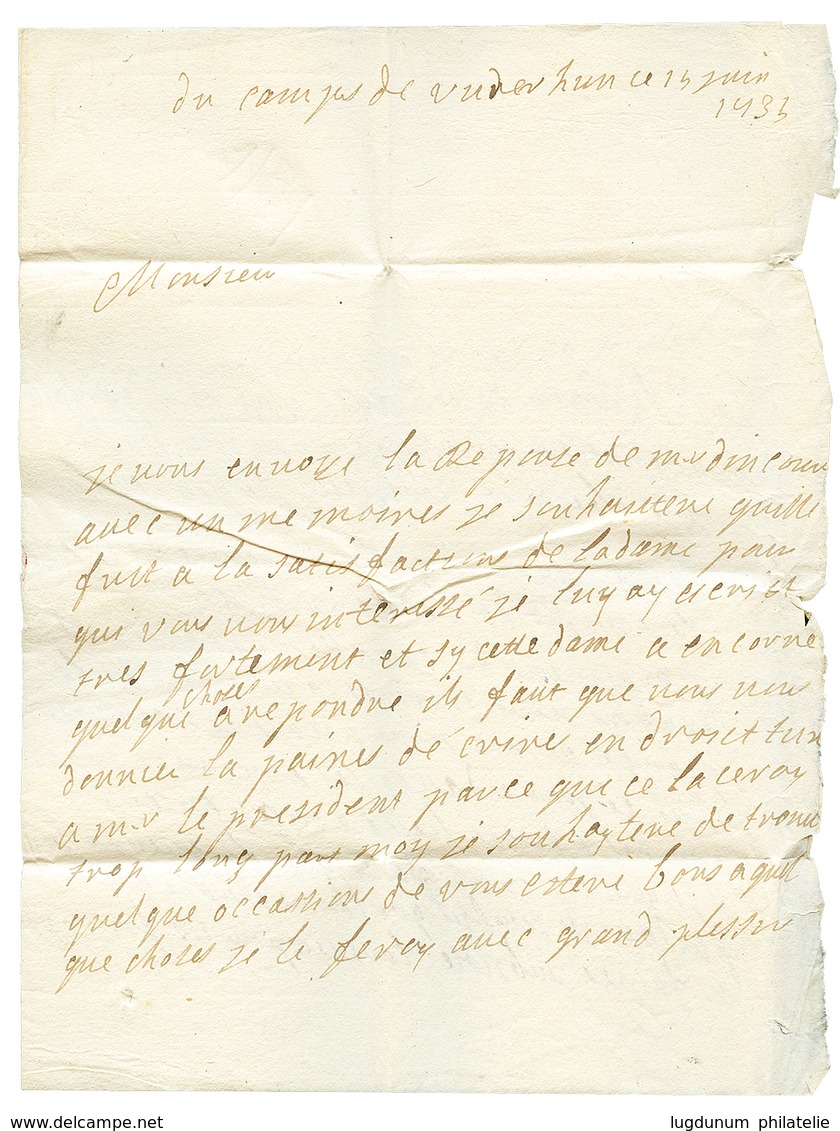 du camps de vuderhun ce 15 juin
1735
Monsieu
je vous envoye la Reponse de mr dincour
avec un me moires je souhaitere quille
fust a la satisfactions de ladame pour
qui vous vous interessé je luy ay escrist
tres fortement et sy cette dame a encorre
quelque choses a repondre ils faut que vous vous
donniez la paines de crire en droictture
a mr le president parce que ce la ceroy
trop long part moy je souhaytere de trouver
quelque occassions de vous estere bons a quel
que choses je le feroy avec grand plessir
www.delcampe.net
lugdunum philatelie